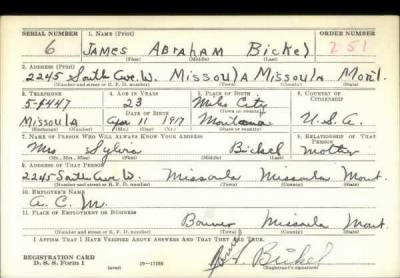 SERIAL NUMBER 1. NAME (Print) ORDER NUMBER
6 JAMES ABRAHAM Bickel 251
(First) (Middle) (Last)
2. ADDRESS (Print)
2245 South Ave. W. Missoula Missoula Mont.
(Number and street or R. F. D. number) (Town) (County) (State)
3. TELEPHONE 4. AGE IN YEARS 5. PLACE OF BIRTH 6. COUNTRY OF CITIZENSHIP
5-8447 23 Miles City
DATE OF BIRTH (Town or county)
Missoula Apr 11 1917 Montana U.S.A.
(Exchange) (Number) (Mo.) (Day) (Yr.) (State or country)
7. NAME OF PERSON WHO WILL ALWAYS KNOW YOUR ADDRESS 8. RELATIONSHIP OF THAT PERSON
Mrs Sylvia Bickel mother
(Mr., Mrs., Miss) (First) (Middle) (Last)
9. ADDRESS OF THAT PERSON
2245 South Ave W. Missoula Missoula Mont.
(Number and street or R. F. D. number) (Town) (County) (State)
10. EMPLOYER'S NAME
A. C. M.
11. PLACE OF EMPLOYMENT OR BUSINESS
Bonner Missoula Mont
(Number and street or R. F. D. number) (Town) (County) (State)
I AFFIRM THAT I HAVE VERIFIED ABOVE ANSWERS AND THAT THEY ARE TRUE.
REGISTRATION CARD
D. S. S. Form 1 (over) 16—17105 Bickel
(Registrant's signature)